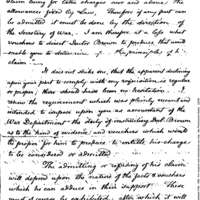 claim being for extra charges over and above the
allowances fixed by Law, therefore if any part can
be admitted it must be done by the direction of
the Secretary of War. I am therefore at a loss what
vouchers to direct Doctor Brown to produce that will
enable you to determine the principles of his
claim
I did not think, that the apparent declining
upon your part to comply with my requisition, so regular
or proper, there should have been no hesitation. I
renew the requirement which was plainly meant and
intended to impose upon you as accountant of the
War Department the duty of instructing Doct. Brown
as to the kind of evidence and vouchers which it would
be proper for him to produce to entitle his charge
to be considered or admitted
The admitting or rejecting of his claim
will depend upon the nature of the facts & vouchers
which he can adduce in their support. These
must of course be exhibited, after which it will